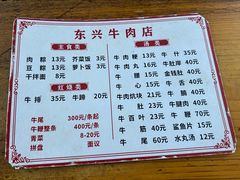 东兴牛肉店
主食类
肉粽 13元 芥菜饭 3元
豆粽 13元 萝卜饭 3元
干拌面 8元
红烧类
牛排 35元 牛蹄 20元
牛尾 300元/条起
牛鞭整条 400元/条
青菜 8-20元
拼盘 面议
汤类
牛肉粳 13元 牛什 35元
牛肉丸 16元 牛肚岸 40元
牛腰 15元 金钱肚 40元
牛心 15元 牛舌 40元
牛肉烧块 21元 牛脑 40元
牛肚 22元 牛腱肉 40元
牛百叶 23元 牛鞭 70元
牛筋 40元 鲨鱼片 15元
牛尾 60元 水丸汤 12元